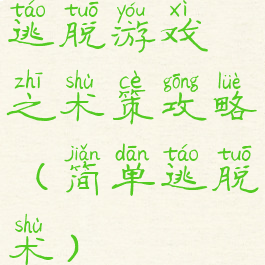 táo tuō yóu xì
逃脱游戏
zhī shù cè gōng lüè
之术策攻略
jiǎn dān táo tuō
（简单逃脱
shù
术）